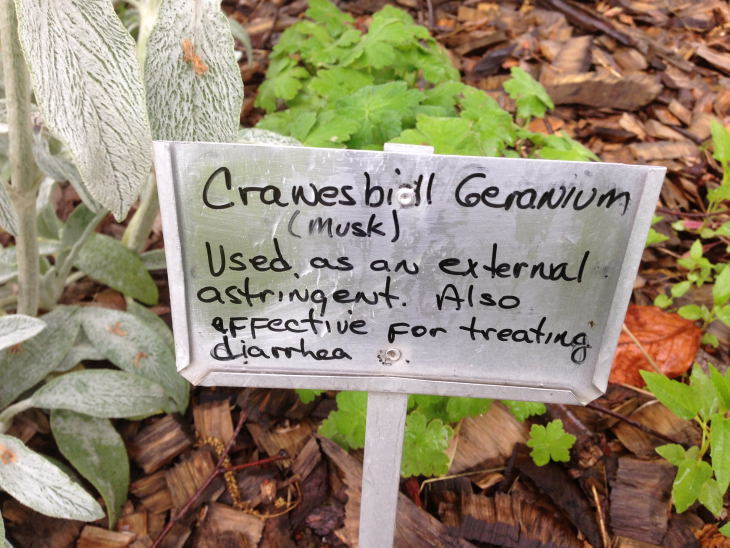 Cranesbill Geranium
(Musk)
Used as an external
astringent. Also
effective for treating
diarrhea